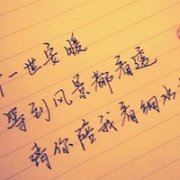 一世安暖
等到风景都看透
请你陪我看细水